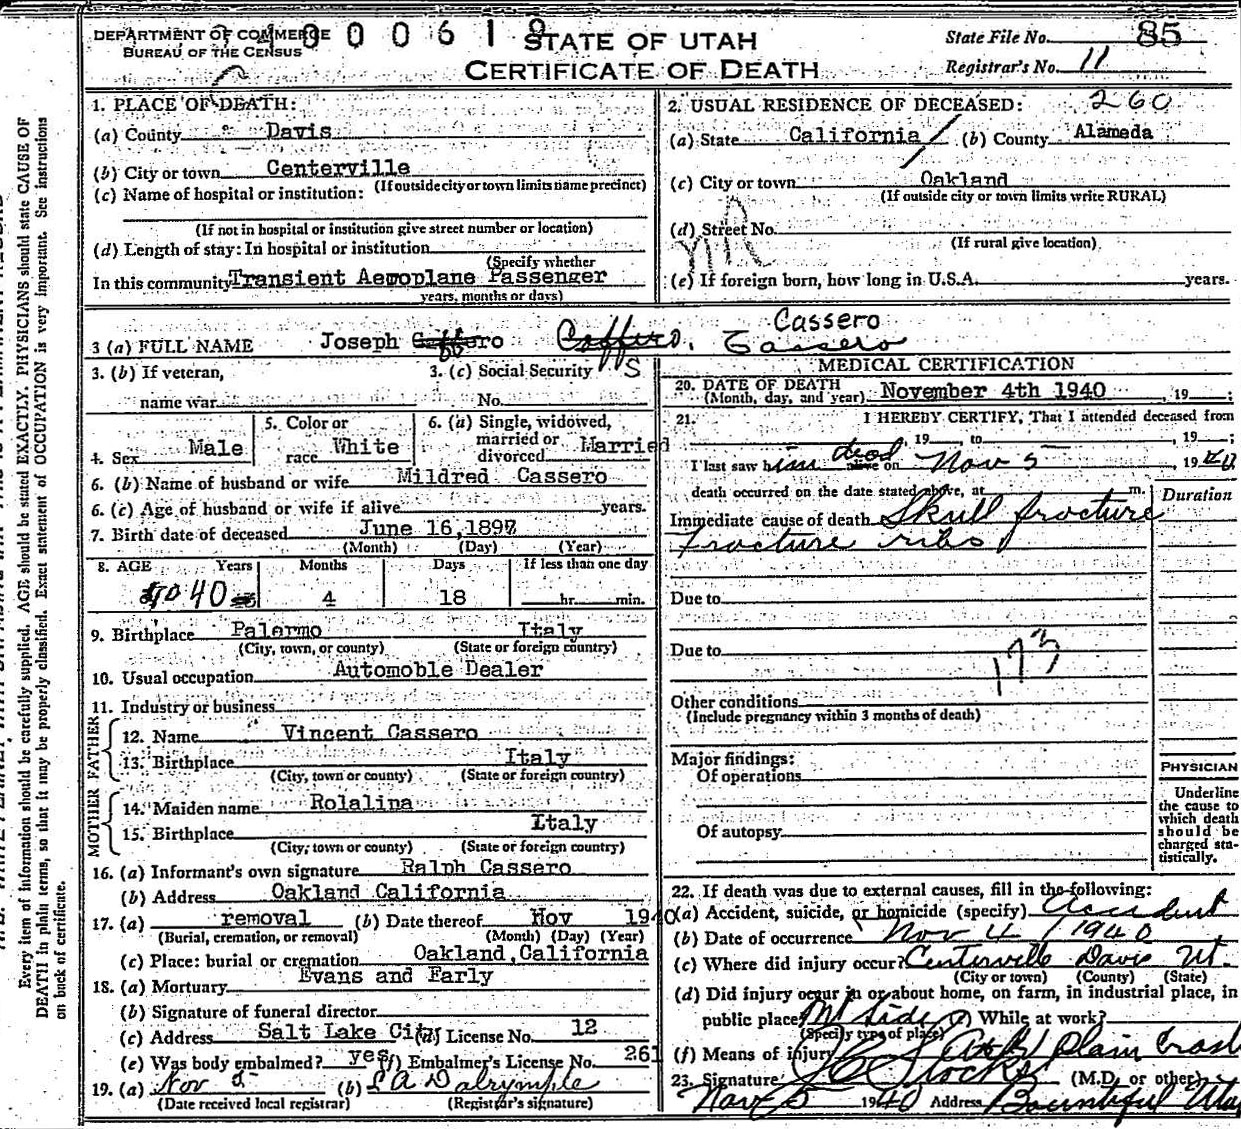 DEPARTMENT OF COMMERCE
BUREAU OF THE CENSUS
000619
STATE OF UTAH
CERTIFICATE OF DEATH
State File No. 85
Registrar's No. 11
1. PLACE OF DEATH:
(a) County Davis
(b) City or town Centerville
(If outside city or town limits name precinct)
(c) Name of hospital or institution:
(If not in hospital or institution give street number or location)
(d) Length of stay: In hospital or institution
(Specify whether
In this community Transient Aeroplane Passenger
years, months or days)
2. USUAL RESIDENCE OF DECEASED: 260
(a) State California (b) County Alameda
(c) City or town Oakland
(If outside city or town limits write RURAL)
(d) Street No.
NR
(If rural give location)
(e) If foreign born, how long in U.S.A. years.
3 (a) FULL NAME Joseph Caffero Caffero. Cassero
Cassero
3. (b) If veteran,
name war
3. (c) Social Security
No.
4. Sex Male
5. Color or
race White
6. (a) Single, widowed,
married or
divorced Married
6. (b) Name of husband or wife Mildred Cassero
6. (c) Age of husband or wife if alive years.
7. Birth date of deceased June 16, 1897
(Month) (Day) (Year)
8. AGE Years Months Days If less than one day
40 4 18 hr. min.
9. Birthplace Palermo Italy
(City, town, or county) (State or foreign country)
10. Usual occupation Automoble Dealer
11. Industry or business
FATHER
12. Name Vincent Cassero
13. Birthplace Italy
(City, town or county) (State or foreign country)
MOTHER
14. Maiden name Rolalina
15. Birthplace Italy
(City, town or county) (State or foreign country)
16. (a) Informant's own signature Ralph Cassero
(b) Address Oakland California
17. (a) removal (b) Date thereof Nov 1940
(Burial, cremation, or removal) (Month) (Day) (Year)
(c) Place: burial or cremation Oakland, California
18. (a) Mortuary Evans and Early
(b) Signature of funeral director
(c) Address Salt Lake City (d) License No. 12
(e) Was body embalmed? yes (f) Embalmer's License No. 261
19. (a) Nov 5 (b) L A Dalrymple
(Date received local registrar) (Registrar's signature)
MEDICAL CERTIFICATION
20. DATE OF DEATH
(Month, day, and year) November 4th 1940, 19 ;
21. I HEREBY CERTIFY, That I attended deceased from
, 19 , to , 19 ;
I last saw him dead alive on Nov 5, 1940
death occurred on the date stated above, at m.
Duration
Immediate cause of death Skull fracture
Fracture ribs
Due to
Due to
173
Other conditions
(Include pregnancy within 3 months of death)
Major findings:
Of operations
Of autopsy
PHYSICIAN
Underline
the cause to
which death
should be
charged sta-
tistically.
22. If death was due to external causes, fill in the following:
(a) Accident, suicide, or homicide (specify) Accident
(b) Date of occurrence Nov 4 1940
(c) Where did injury occur? Centerville Davis Ut.
(City or town) (County) (State)
(d) Did injury occur in or about home, on farm, in industrial place, in
public place? Mt Side (e) While at work?
(Specify type of place)
(f) Means of injury plain Crash
23. Signature Stocks (M.D. or other)
Nov 5 1940 Address Bountiful Utah
Every item of information should be carefully supplied. AGE should be stated EXACTLY. PHYSICIANS should state CAUSE OF
DEATH in plain terms, so that it may be properly classified. Exact statement of OCCUPATION is very important. See instructions
on back of certificate.